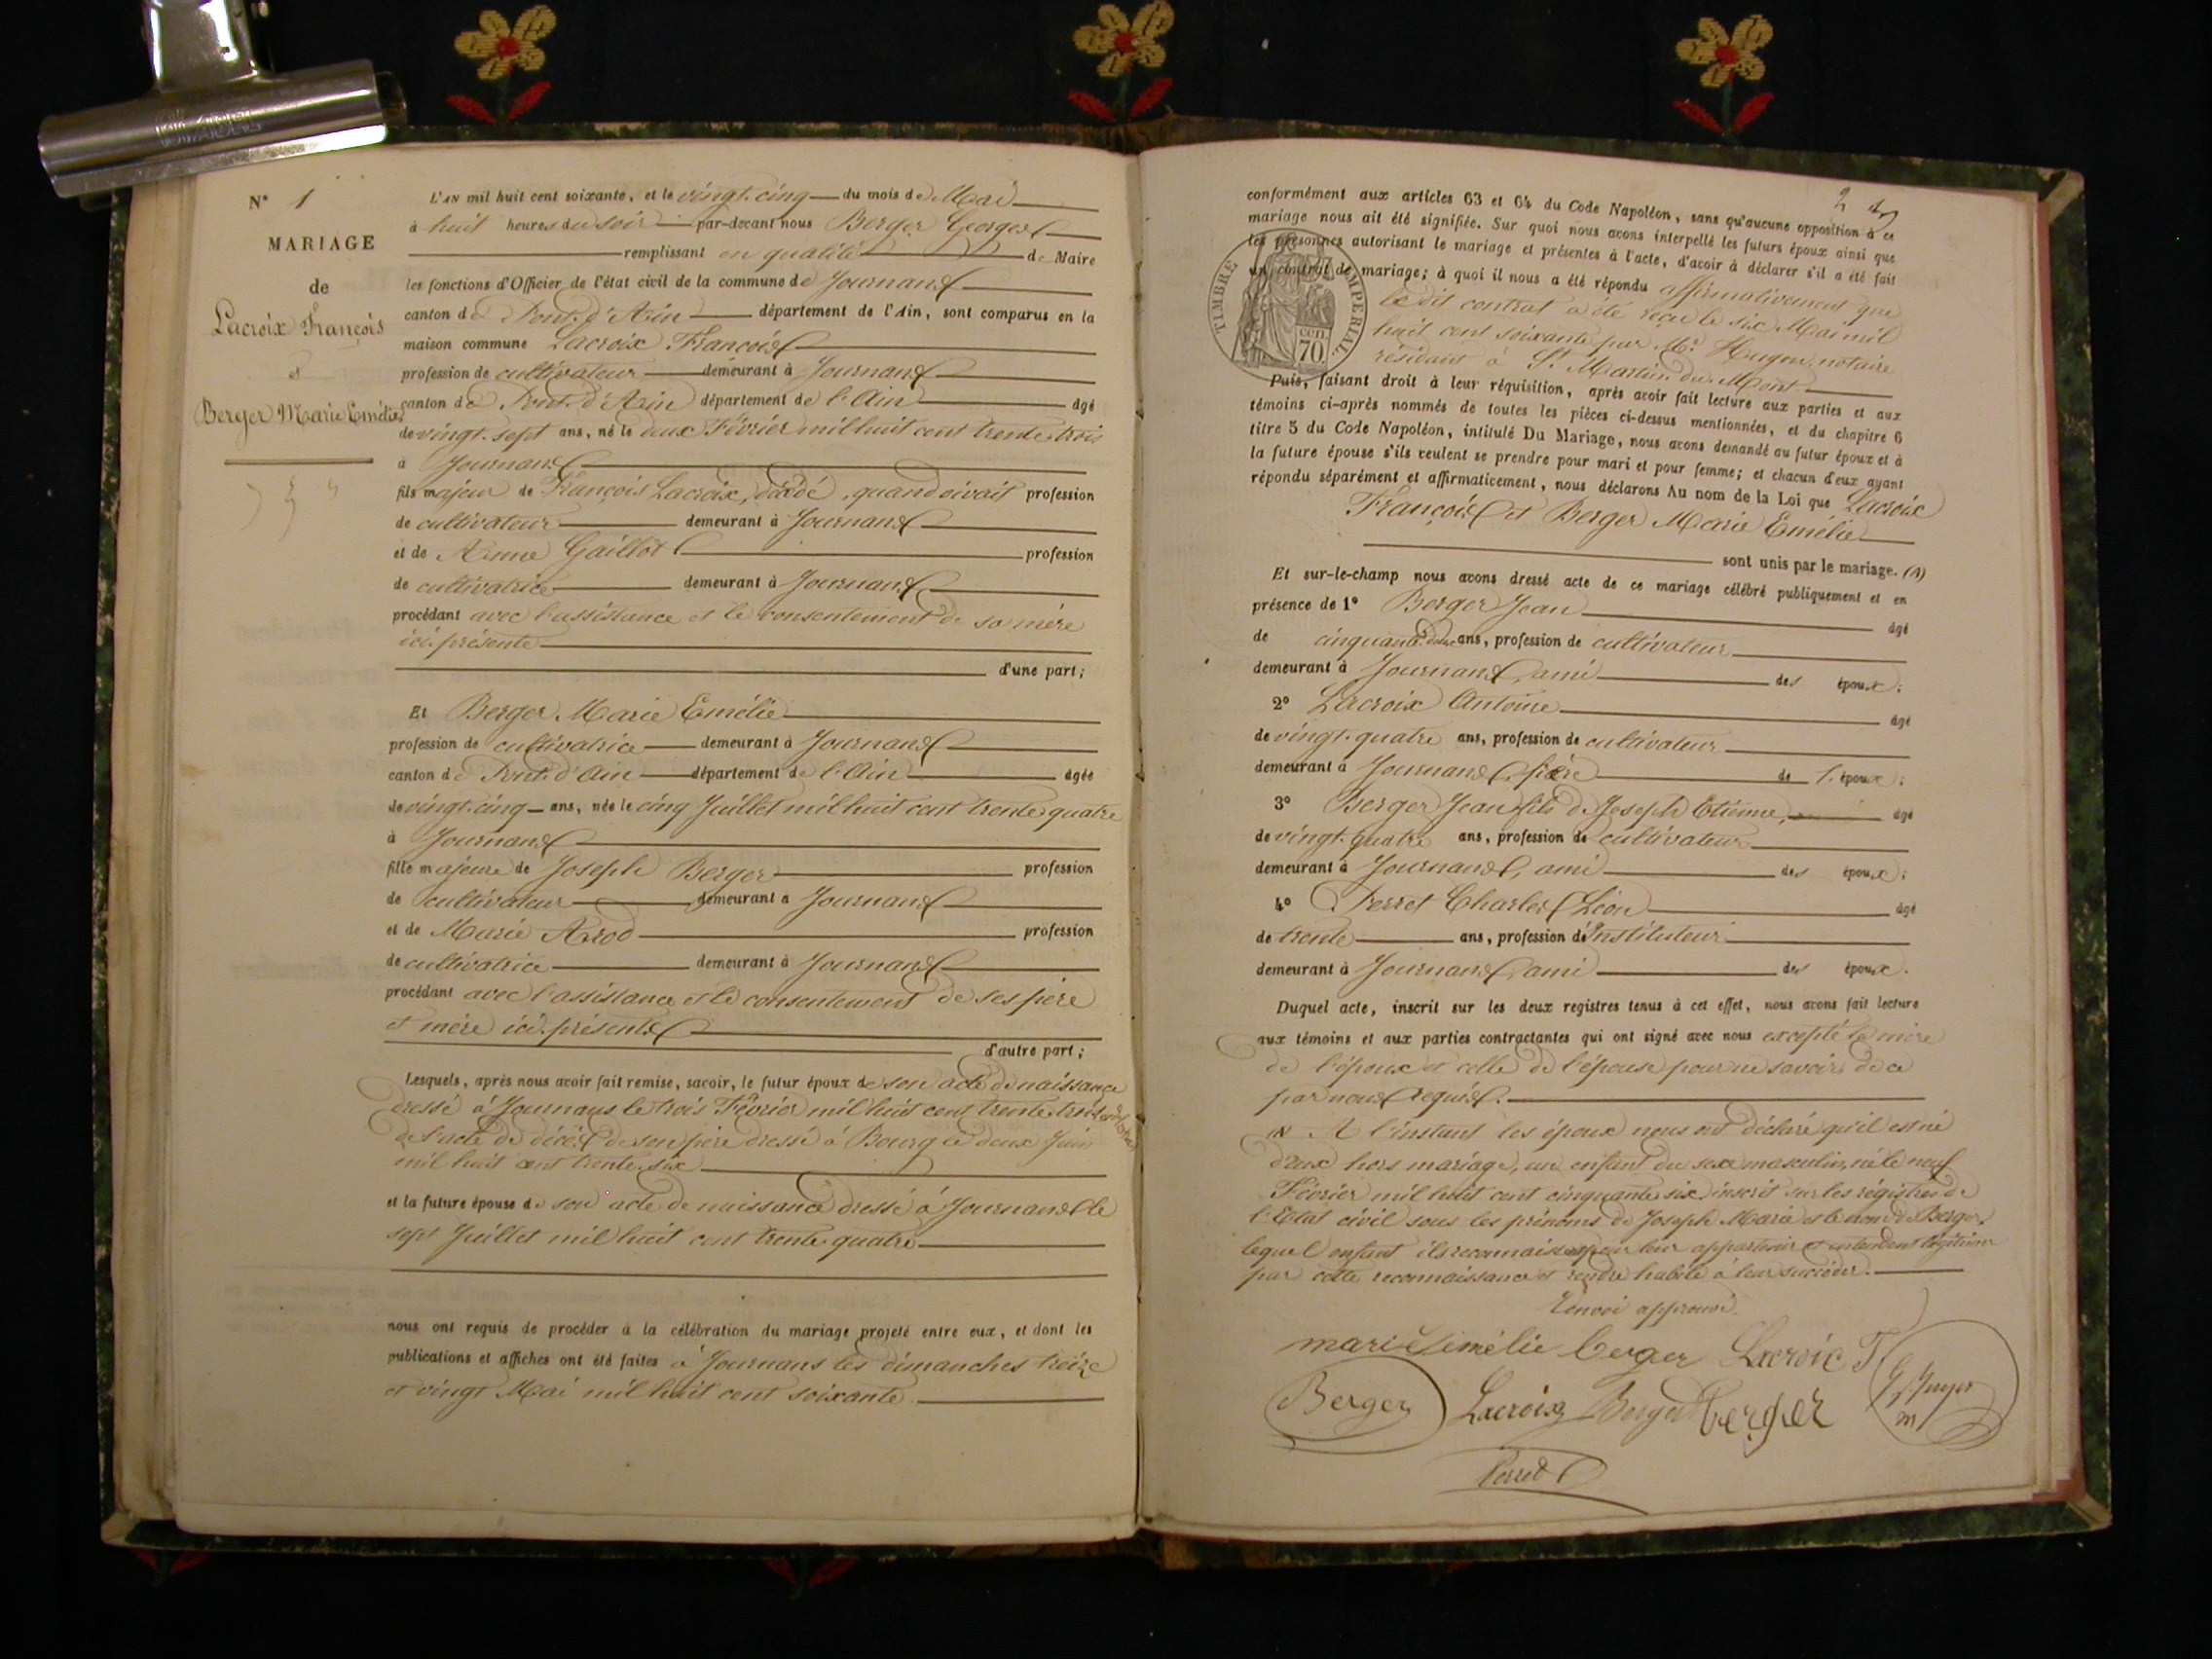 N° 1
MARIAGE
de
Lacroix François
et
Berger Marie Emélie
L'AN mil huit cent soixante, et le vingt-cinq du mois de Mai
à huit heures du soir par-devant nous Berger Georges
remplissant en qualité de Maire
les fonctions d'Officier de l'état civil de la commune de Journans
canton de Pont-d'Ain département de l'Ain, sont comparus en la
maison commune Lacroix François
profession de cultivateur demeurant à Journans
canton de Pont-d'Ain département de l'Ain âgé
de vingt-sept ans, né le deux Février mil huit cent trente-trois
à Journans
fils majeur de François Lacroix, décédé, quand vivait profession
de cultivateur demeurant à Journans
et de Anne Gaillot profession
de cultivatrice demeurant à Journans
procédant avec l'assistance et le consentement de sa mère
ici présente
d'une part;
Et Berger Marie Emélie
profession de cultivatrice demeurant à Journans
canton de Pont-d'Ain département de l'Ain âgée
de vingt-cinq ans, née le cinq Juillet mil huit cent trente-quatre
à Journans
fille majeure de Joseph Berger profession
de cultivateur demeurant à Journans
et de Marie Arod profession
de cultivatrice demeurant à Journans
procédant avec l'assistance et le consentement de ses père
et mère ici présents
d'autre part;
Lesquels, après nous avoir fait remise, savoir, le futur époux de son acte de naissance
dressé à Journans le trois Février mil huit cent trente-trois
de l'acte de décès de son père dressé à Bourg le deux Juin
mil huit cent trente-six
et la future épouse de son acte de naissance dressé à Journans le
sept Juillet mil huit cent trente-quatre
nous ont requis de procéder à la célébration du mariage projeté entre eux, et dont les
publications et affiches ont été faites à Journans les dimanches treize
et vingt Mai mil huit cent soixante
2
conformément aux articles 63 et 64 du Code Napoléon, sans qu'aucune opposition à ce
mariage nous ait été signifiée. Sur quoi nous avons interpellé les futurs époux ainsi que
les personnes autorisant le mariage et présentes à l'acte, d'avoir à déclarer s'il a été fait
un contrat de mariage; à quoi il nous a été répondu affirmativement que
TIMBRE IMPERIAL
cen
70
le dit contrat a été reçu le six Mai mil
huit cent soixante par Me notaire
résidant à St Martin-du-Mont
Puis, faisant droit à leur réquisition, après avoir fait lecture aux parties et aux
témoins ci-après nommés de toutes les pièces ci-dessus mentionnées, et du chapitre 6
titre 5 du Code Napoléon, intitulé Du Mariage, nous avons demandé au futur époux et à
la future épouse s'ils veulent se prendre pour mari et pour femme; et chacun d'eux ayant
répondu séparément et affirmativement, nous déclarons Au nom de la Loi que Lacroix
François et Berger Marie Emélie
sont unis par le mariage. (1)
Et sur-le-champ nous avons dressé acte de ce mariage célébré publiquement et en
présence de 1° Berger Jean âgé
de cinquante ans, profession de cultivateur
demeurant à Journans, ami des époux;
2° Lacroix Antoine âgé
de vingt-quatre ans, profession de cultivateur
demeurant à Journans, frère de l'époux;
3° Berger Jean fils de Joseph Etienne, âgé
de vingt-quatre ans, profession de cultivateur
demeurant à Journans, ami des époux;
4° Perret Charles Léon âgé
de trente ans, profession d'Instituteur
demeurant à Journans, ami des époux.
Duquel acte, inscrit sur les deux registres tenus à cet effet, nous avons fait lecture
aux témoins et aux parties contractantes qui ont signé avec nous excepté la mère
de l'époux et celle de l'épouse pour ne savoir de ce
par nous requis.
(1) A l'instant les époux nous ont déclaré qu'il est né
d'eux hors mariage, un enfant du sexe masculin, né le neuf
Février mil huit cent cinquante-six inscrit sur les régistres de
l'Etat civil sous les prénoms de Joseph Marie et le nom de Berger,
lequel enfant ils reconnaissent pour leur appartenir et entendent légitimer
par cette reconnaissance et rendre habile à leur succéder.
Renvoi approuvé.
marie émélie berger Lacroix F
Berger Lacroix Berger berger
Perret